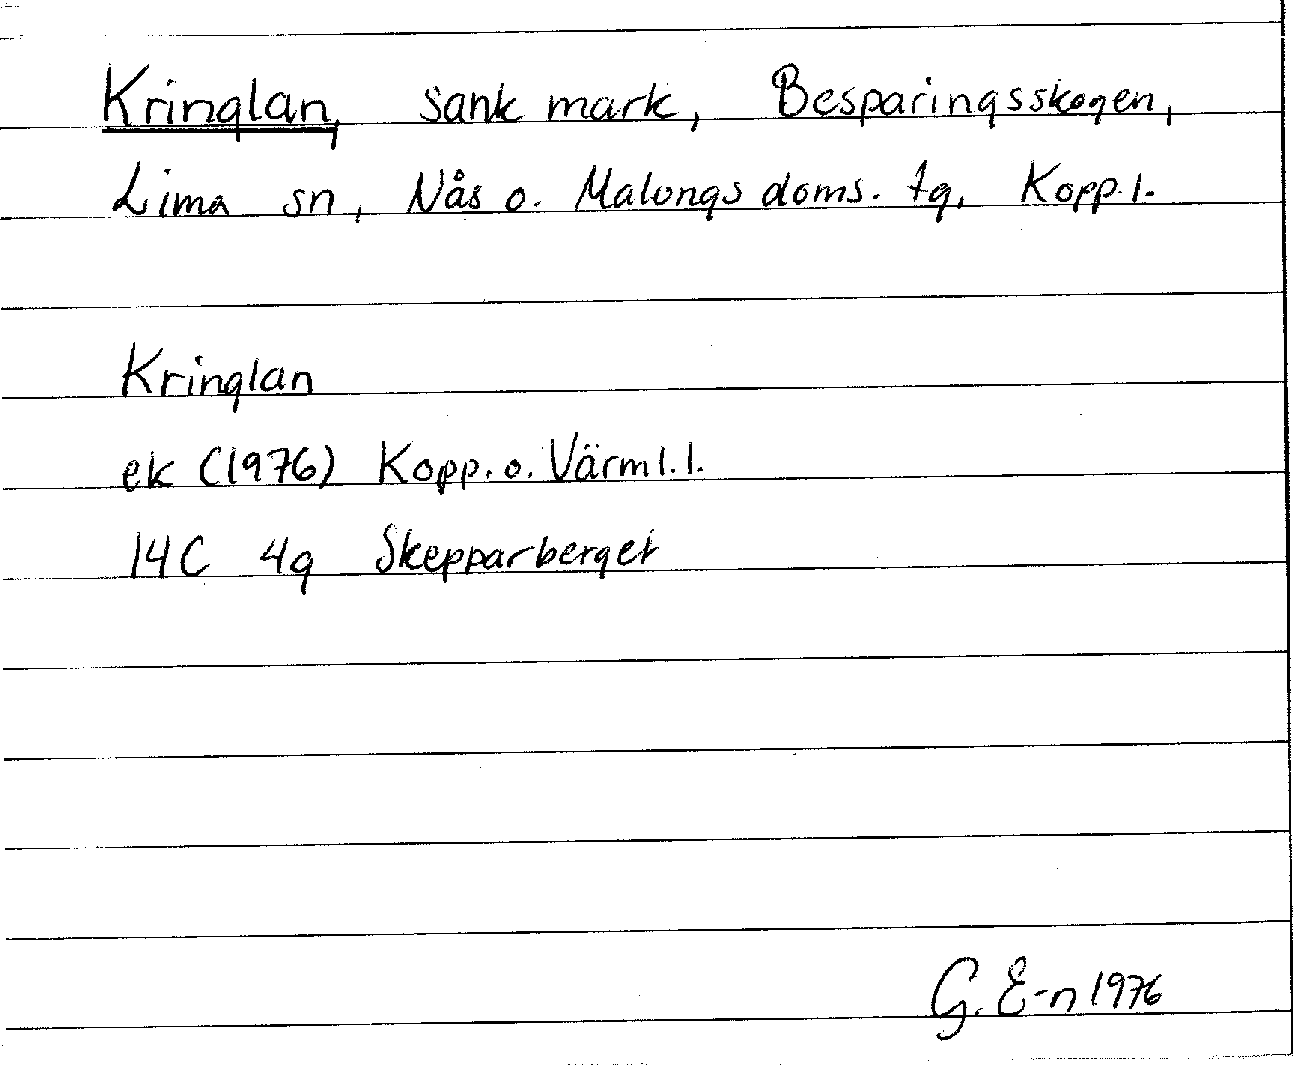 Kringlan, sank mark, Besparingsskogen,
Lima sn, Nås o. Malungs doms. tg, Kopp.l.
Kringlan
ek (1976) Kopp. o. Värml.l.
14C 4g Skepparberget
G. E-n 1976